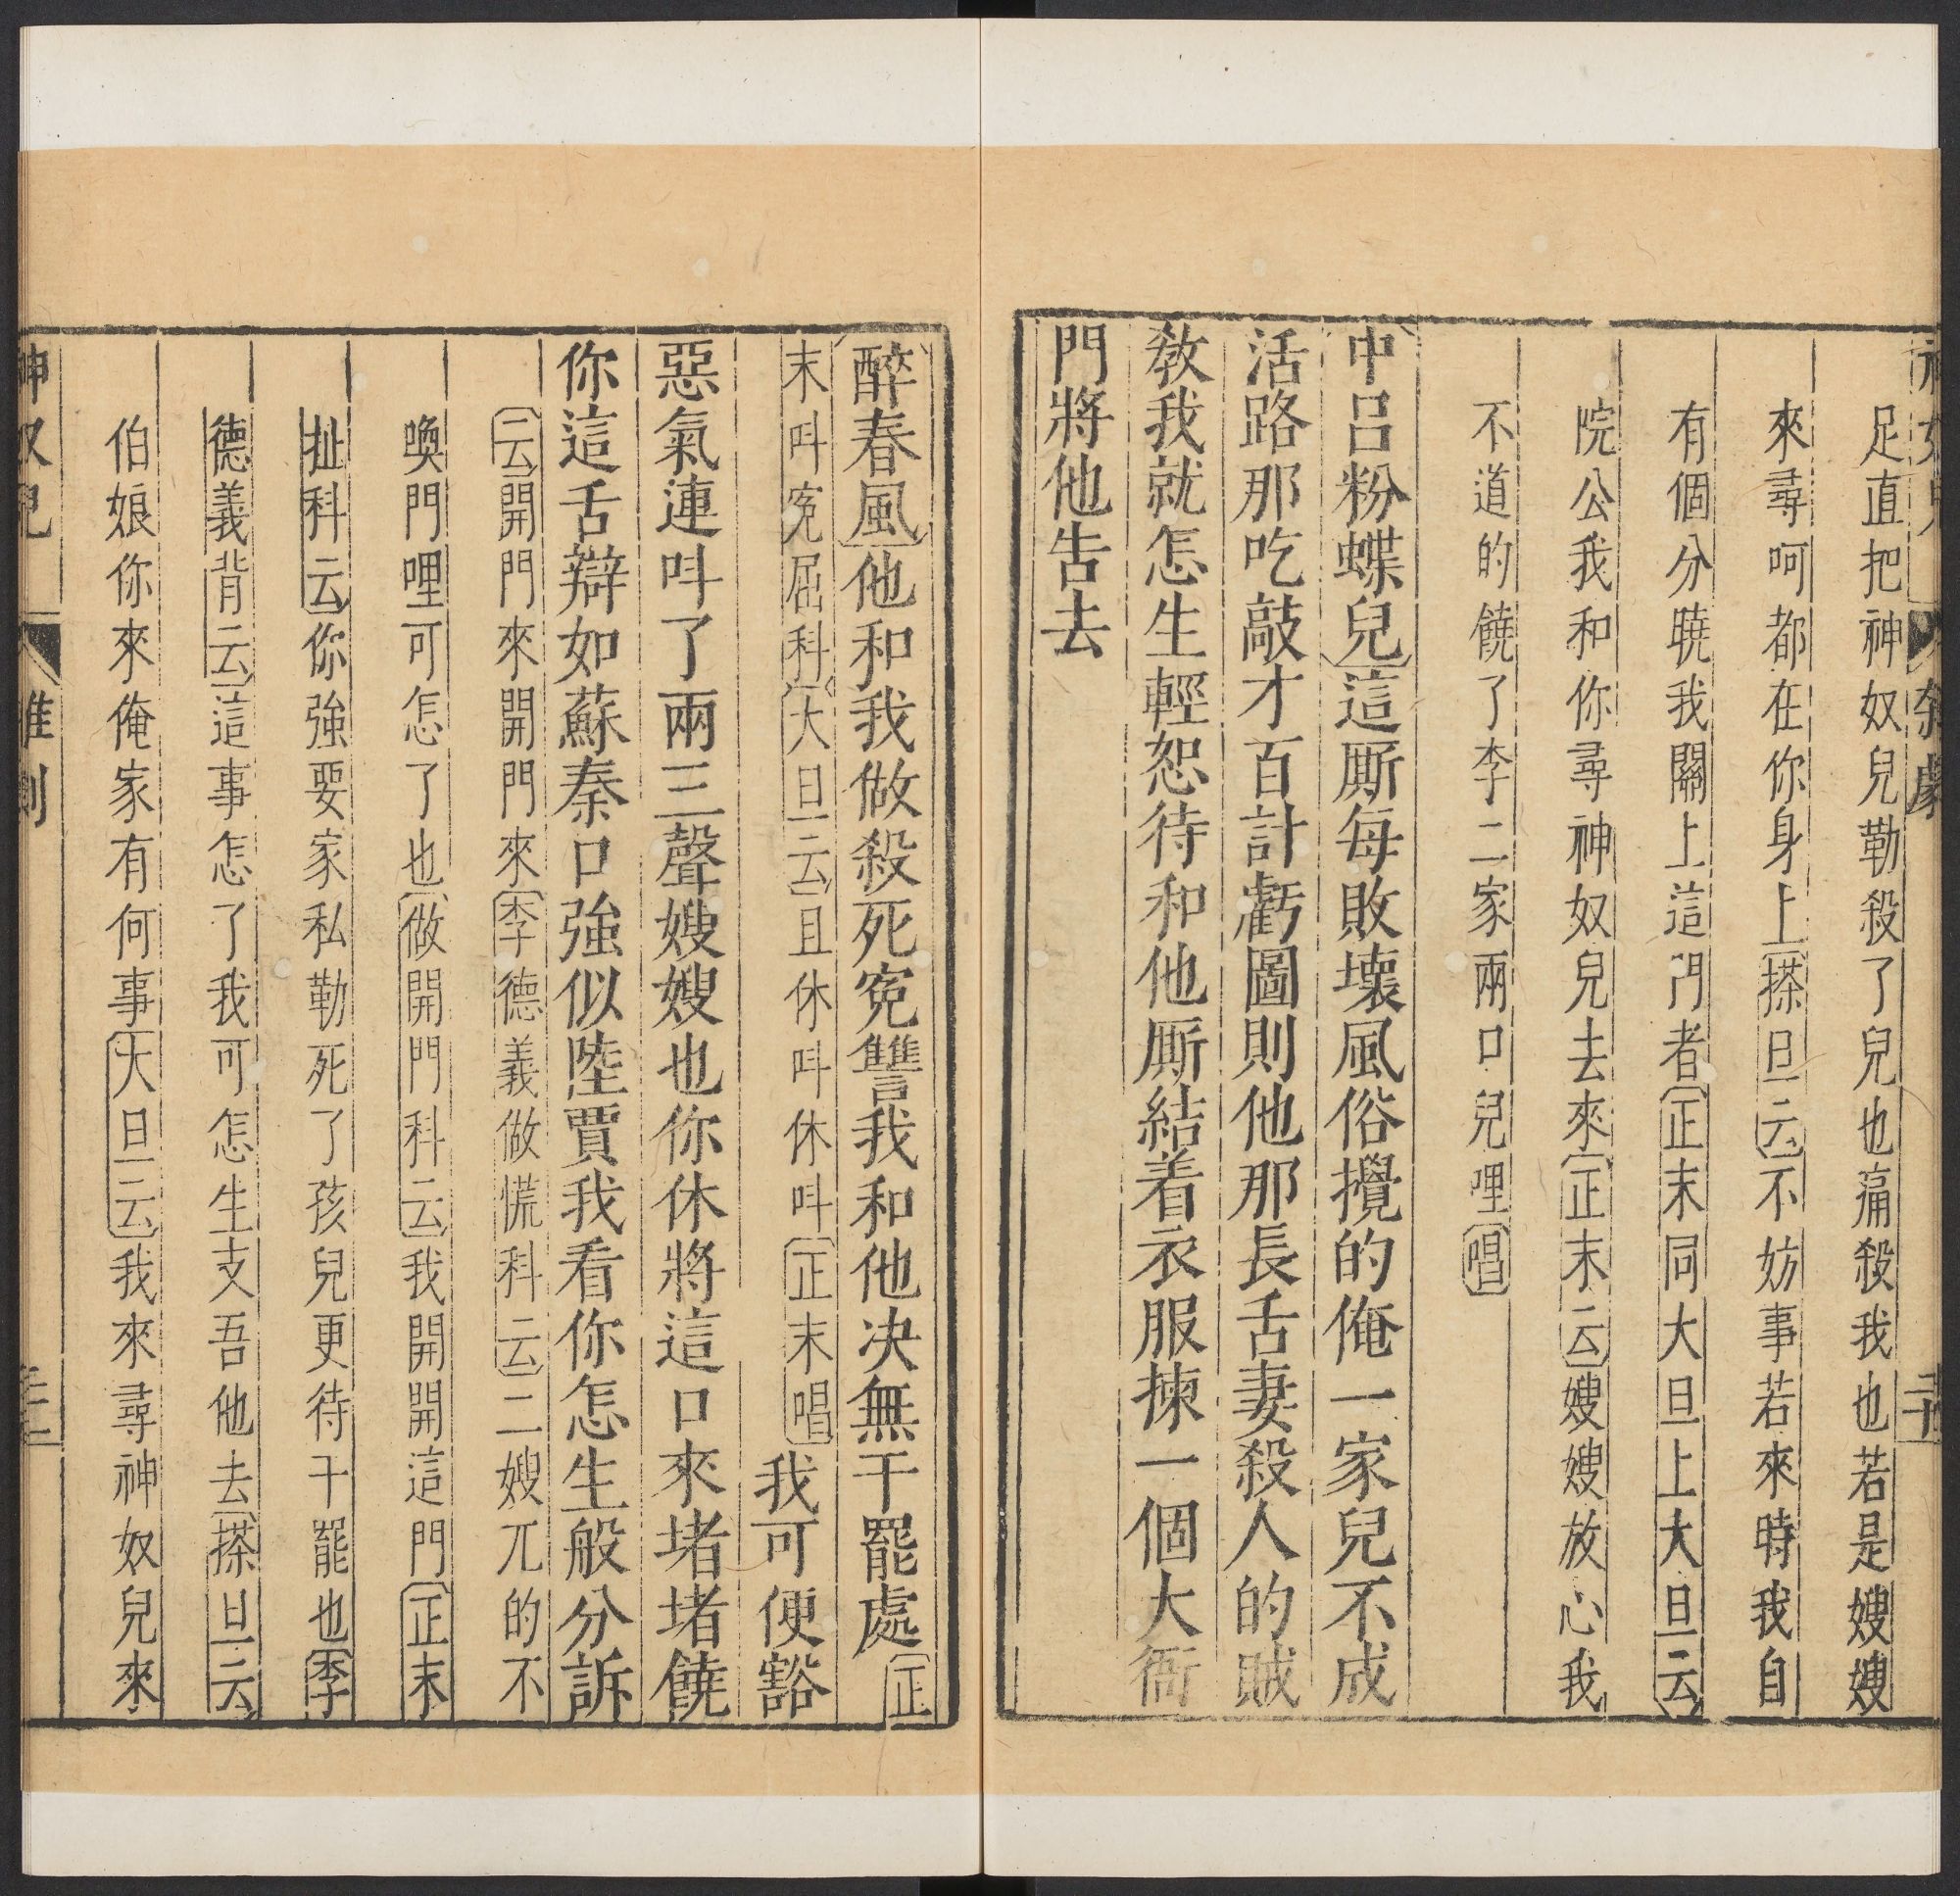 足直把神奴兒勒殺了兒也痛殺我也若是嫂嫂
來尋呵都在你身上搽旦云不妨事若來時我自
有個分曉我關上這門者正末同大旦上大旦云
院公我和你尋神奴兒去來正末云嫂嫂放心我
不道的饒了李二家兩口兒哩唱
中呂粉蝶兒這厮每敗壞風俗攪的俺一家兒不成
活路那吃敲才百計虧圖則他那長舌妻殺人的賊
教我就怎生輕恕待和他厮結着衣服揀一個大衙
門將他告去
醉春風他和我做殺死寃讐我和他决無干罷處正
末呌寃屈科大旦云且休呌休呌正末唱我可便豁
惡氣連呌了兩三聲嫂嫂也你休將這口來堵堵饒
你這舌辯如蘇秦口強似陸賈我看你怎生般分訴
云開門來開門來李德義做慌科云二嫂兀的不
喚門哩可怎了也做開門科云我開開這門正末
扯科云你強要家私勒死了孩兒更待干罷也李
德義背云這事怎了我可怎生支吾他去搽旦云
伯娘你來俺家有何事大旦云我來尋神奴兒來